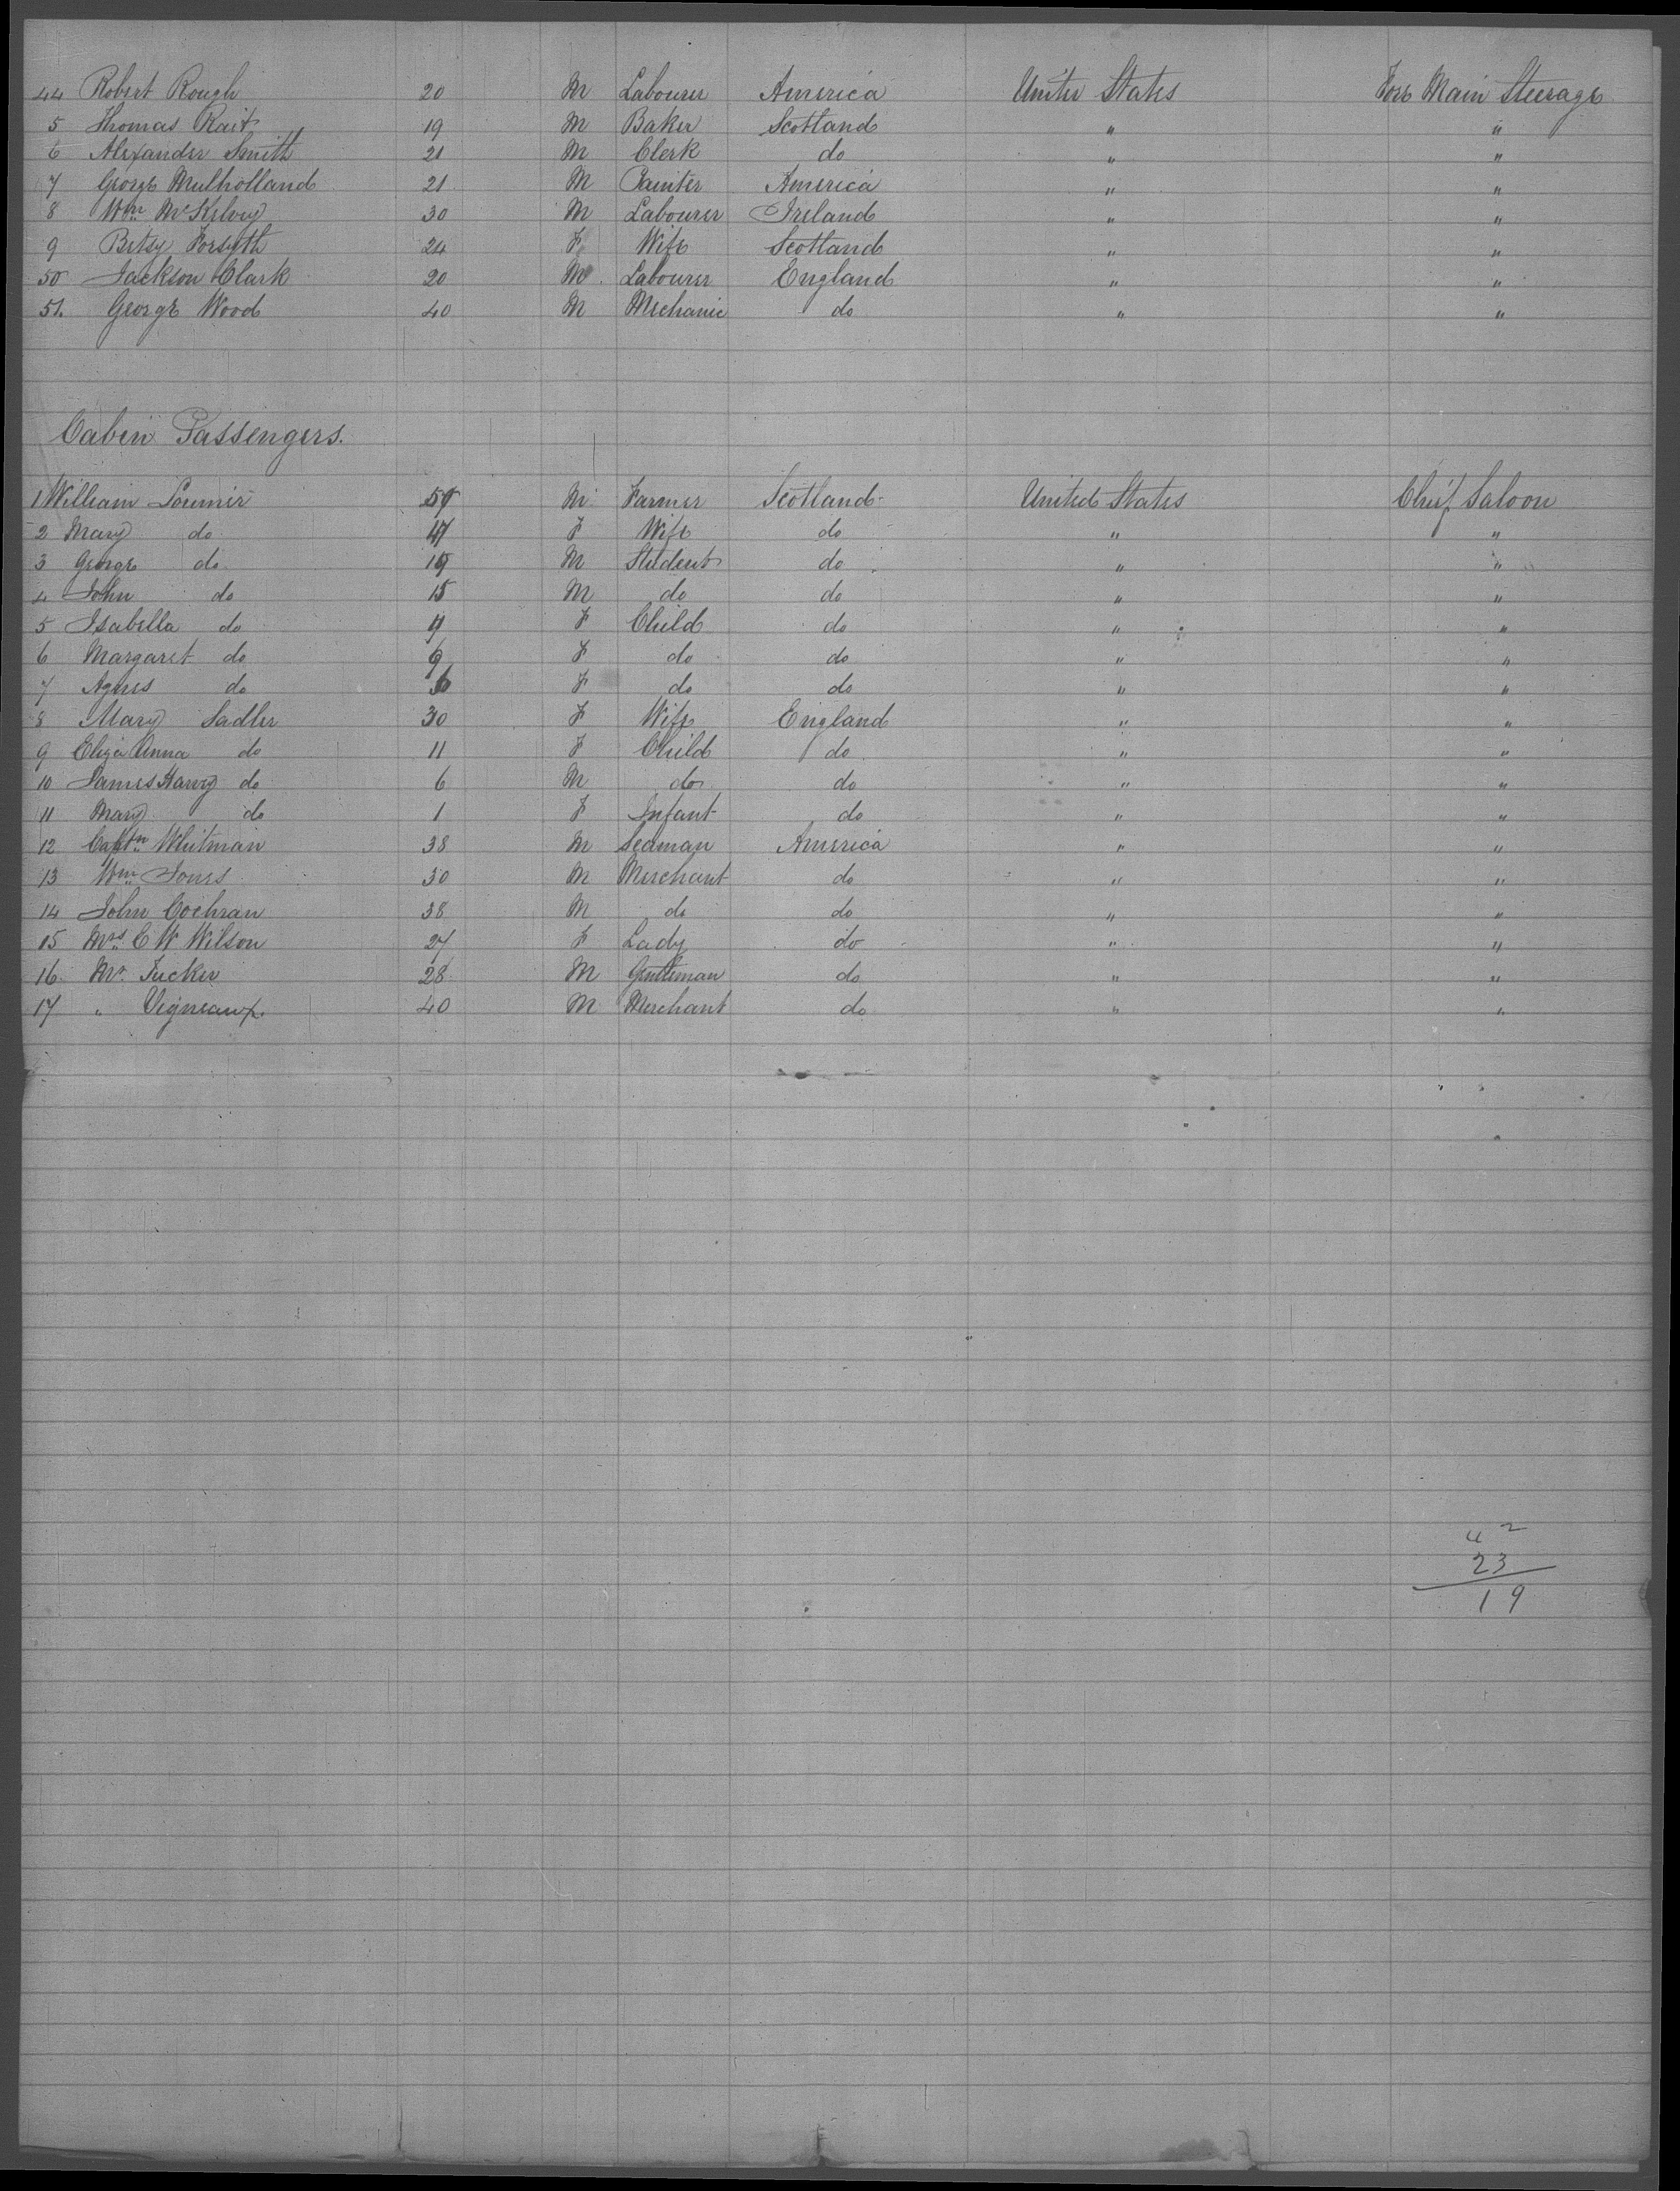 44 Robert Rough 20 M Labourer America United States Fore Main Steerage
5 Thomas Rait 19 M Baker Scotland " "
6 Alexander Smith 21 M Clerk do " "
7 George Mulholland 21 M Painter America " "
8 Wm McKelvey 30 M Labourer Ireland " "
9 Betsy Forsyth 24 F Wife Scotland " "
50 Jackson Clark 20 M Labourer England " "
51. George Wood 40 M Mechanic do " "
Cabin Passengers.
1 William M Farmer Scotland United States Chief Saloon
2 Mary do 47 F Wife do " "
3 George do 19 M Student do " "
4 John do 15 M do do " "
5 Isabella do F Child do " "
6 Margaret do 9 F do do " "
7 Agnes do 6 F do do " "
8 Mary Sadler 30 F Wife England " "
9 Eliza Anna do 11 F Child do " "
10 James Harvey do 6 M do do " "
11 Mary do 1 F Infant do " "
12 Captn Whitman 38 M Seaman America " "
13 Wm Jones 30 M Merchant do " "
14 John Cochran 38 M do do " "
15 Mrs. C W Wilson 27 F Lady do " "
16 Mr. Tucker 28 M Gentleman do " "
17 " Vigneaux. 40 M Merchant do " "
42
23
19